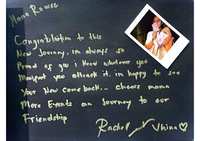 Congratulation to this
New Journey, im always so
Proud of you i know whatever you
Manifest you attract it. im happy to see
Your New come back.. cheers mama
More Events an Journey to our
Friendship
Rachell Vhina